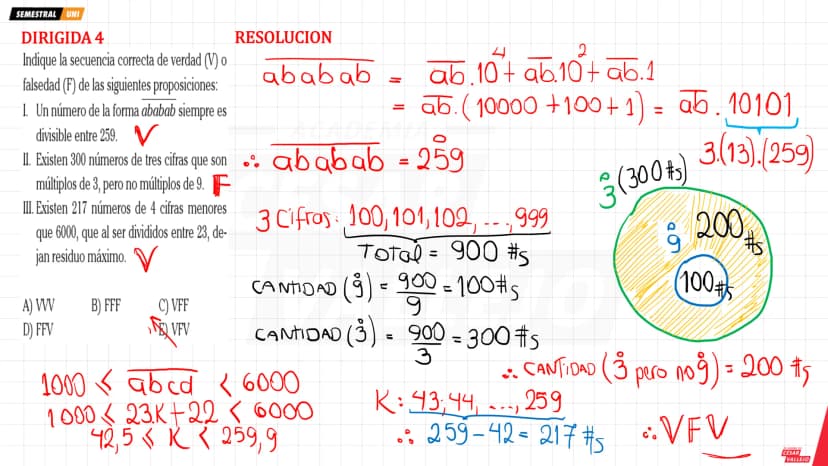 SEMESTRAL UNI
DIRIGIDA 4
Indique la secuencia correcta de verdad (V) o
falsedad (F) de las siguientes proposiciones:
I. Un número de la forma ababab siempre es
divisible entre 259. V
II. Existen 300 números de tres cifras que son
múltiplos de 3, pero no múltiplos de 9. F
III. Existen 217 números de 4 cifras menores
que 6000, que al ser divididos entre 23, de-
jan residuo máximo. V
A) VVV B) FFF C) VFF
D) FFV E) VFV
RESOLUCION
ababab = ab.10⁴ + ab.10² + ab.1
= ab.(10000 + 100 + 1) = ab.10101
3.(13).(259)
∴ ababab = 259°
3 Cifras: 100, 101, 102, ..., 999
TOTAL = 900 #s
CANTIDAD (9°) = 900/9 = 100 #s
CANTIDAD (3°) = 900/3 = 300 #s
3° (300 #s)
9° 200 #s
100 #s
∴ CANTIDAD (3° pero no 9°) = 200 #s
1000 ≤ abcd < 6000
1000 ≤ 23.K + 22 < 6000
42,5 ≤ K < 259,9
K: 43, 44, ..., 259
∴ 259 - 42 = 217 #s
∴ VFV
CESAR
VALLEJO